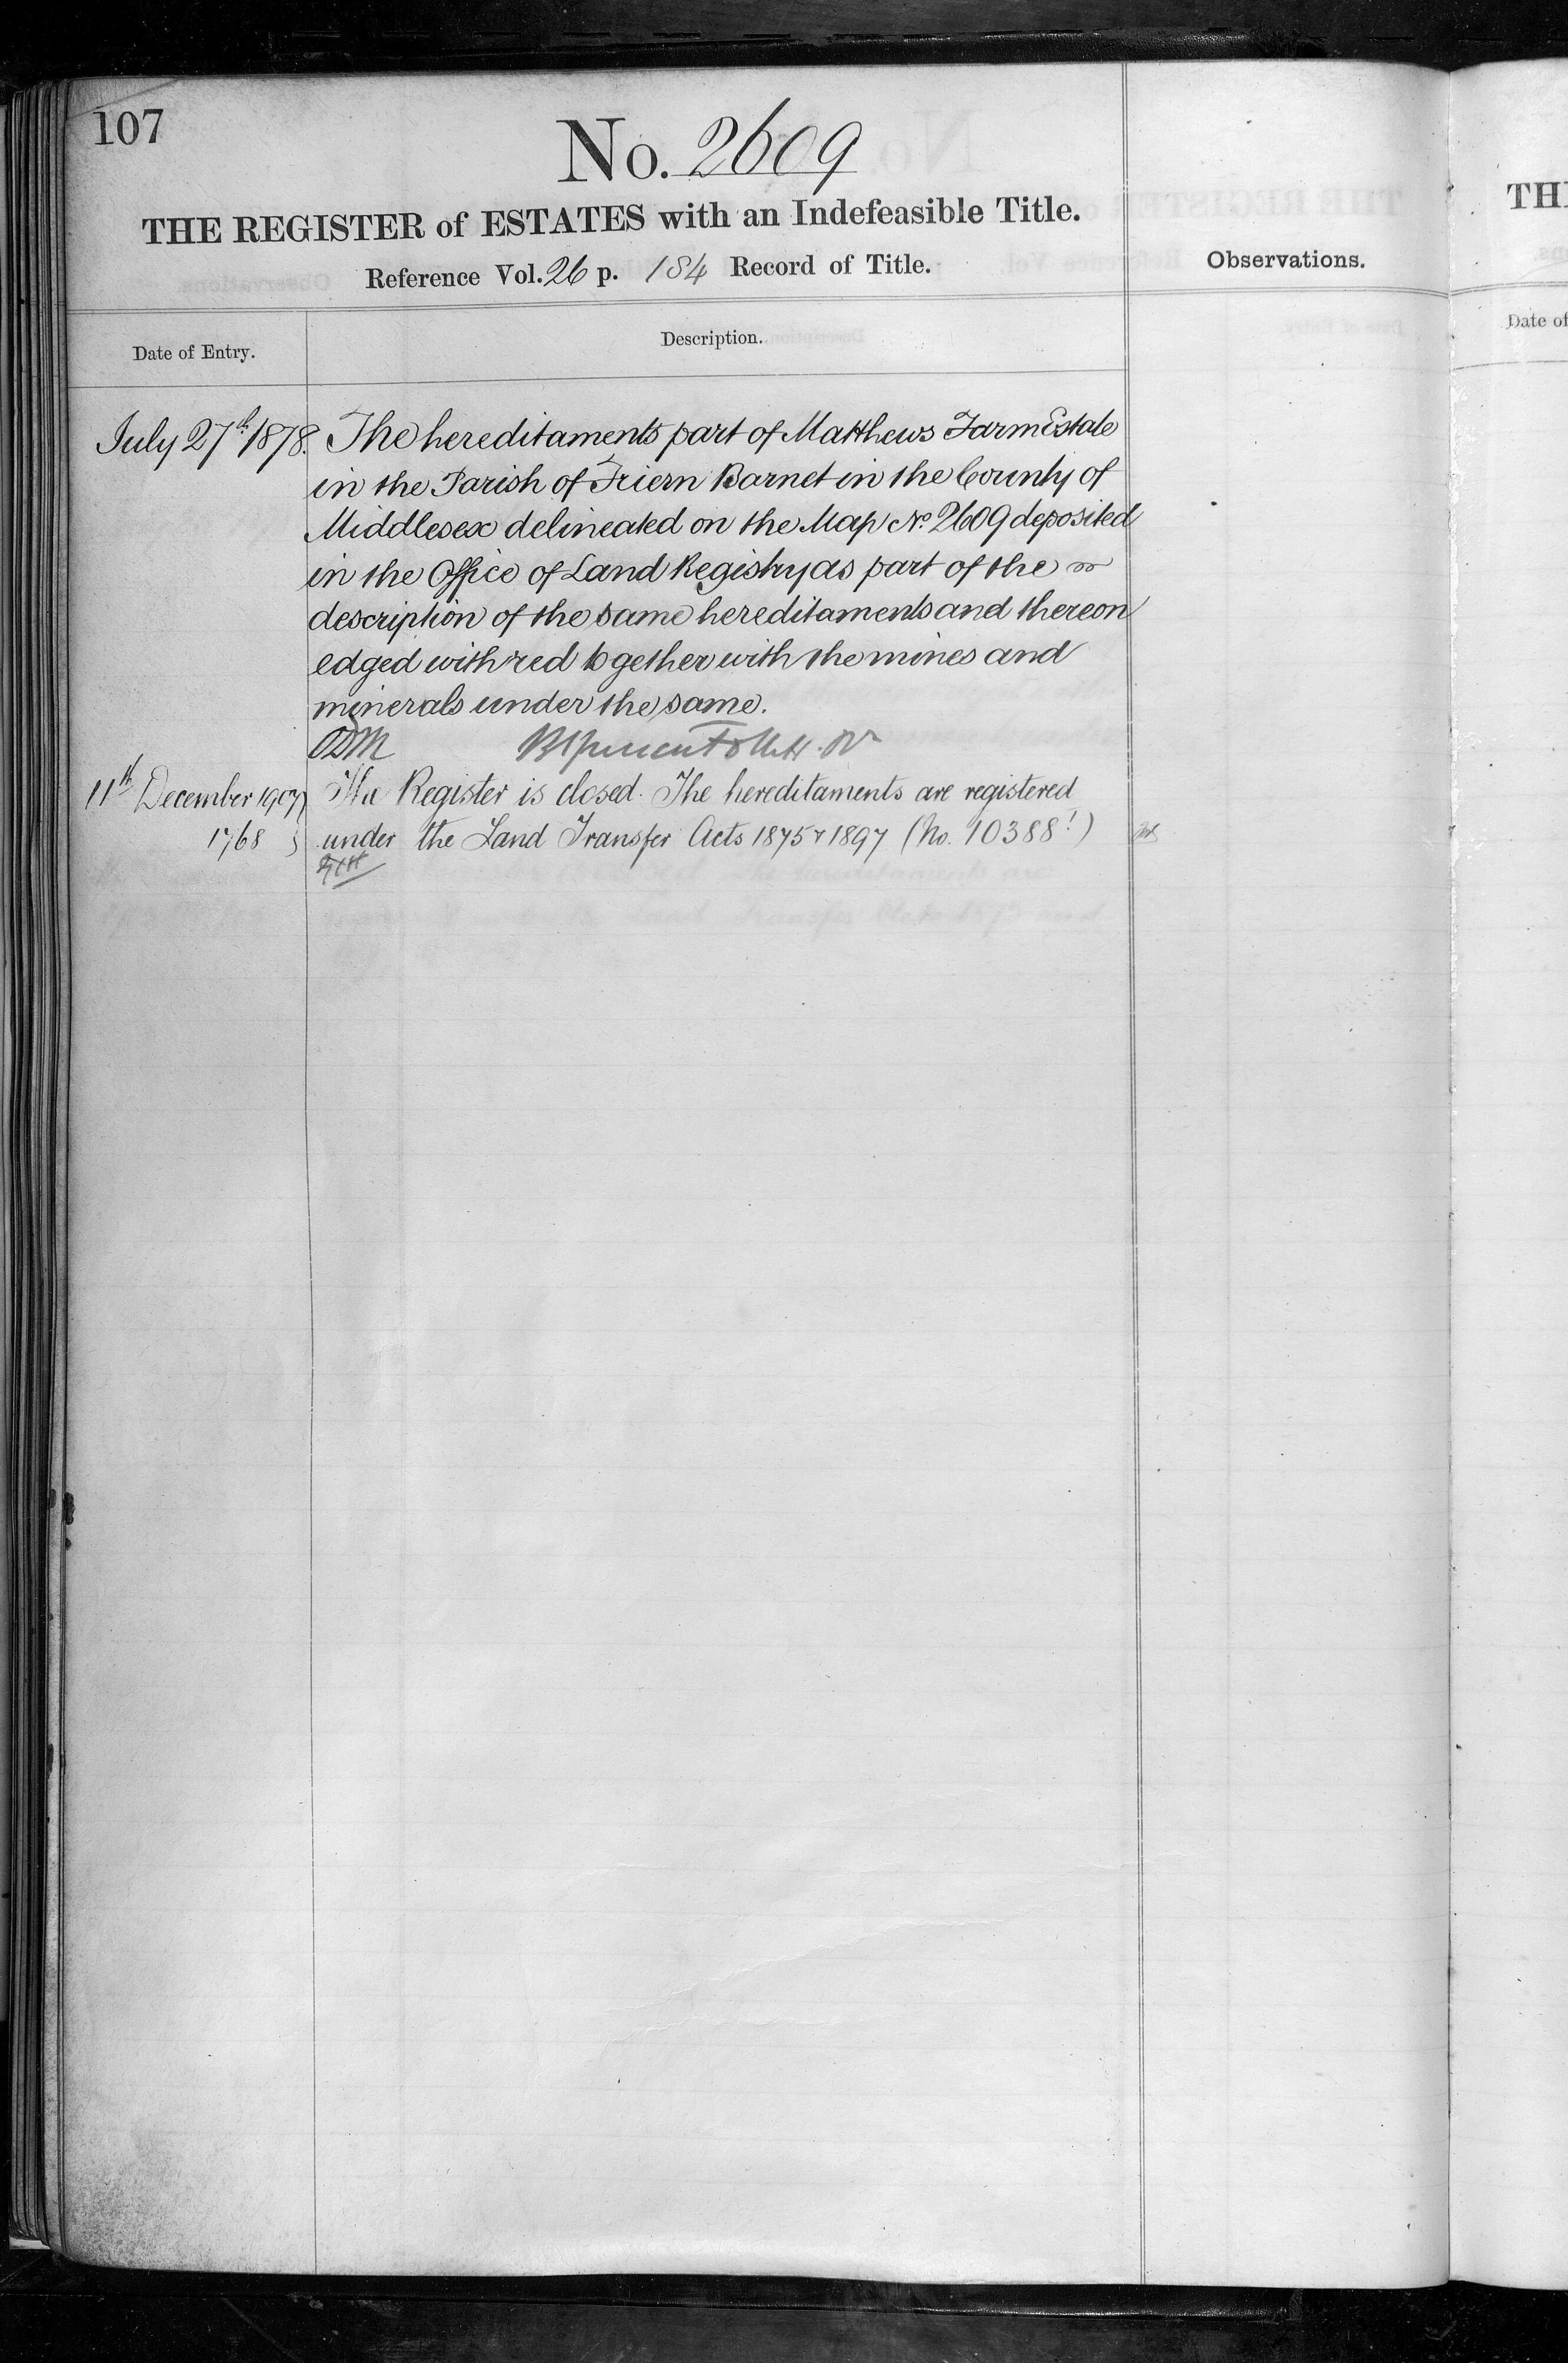 107
No. 2609
THE REGISTER of ESTATES with an Indefeasible Title.
Reference Vol. 26 p. 184 Record of Title.
Observations.
Date of Entry.
Description.
July 27th 1878. The hereditaments part of Matthews Farm Estate
in the Parish of Friern Barnet in the County of
Middlesex delineated on the Map No. 2609 deposited
in the Office of Land Registry as part of the
description of the same hereditaments and thereon
edged with red together with the mines and
minerals under the same.
11th December 1907 The Register is closed. The hereditaments are registered
1768 under the Land Transfer Acts 1875 & 1897 (No. 10388!)
TH
Date of